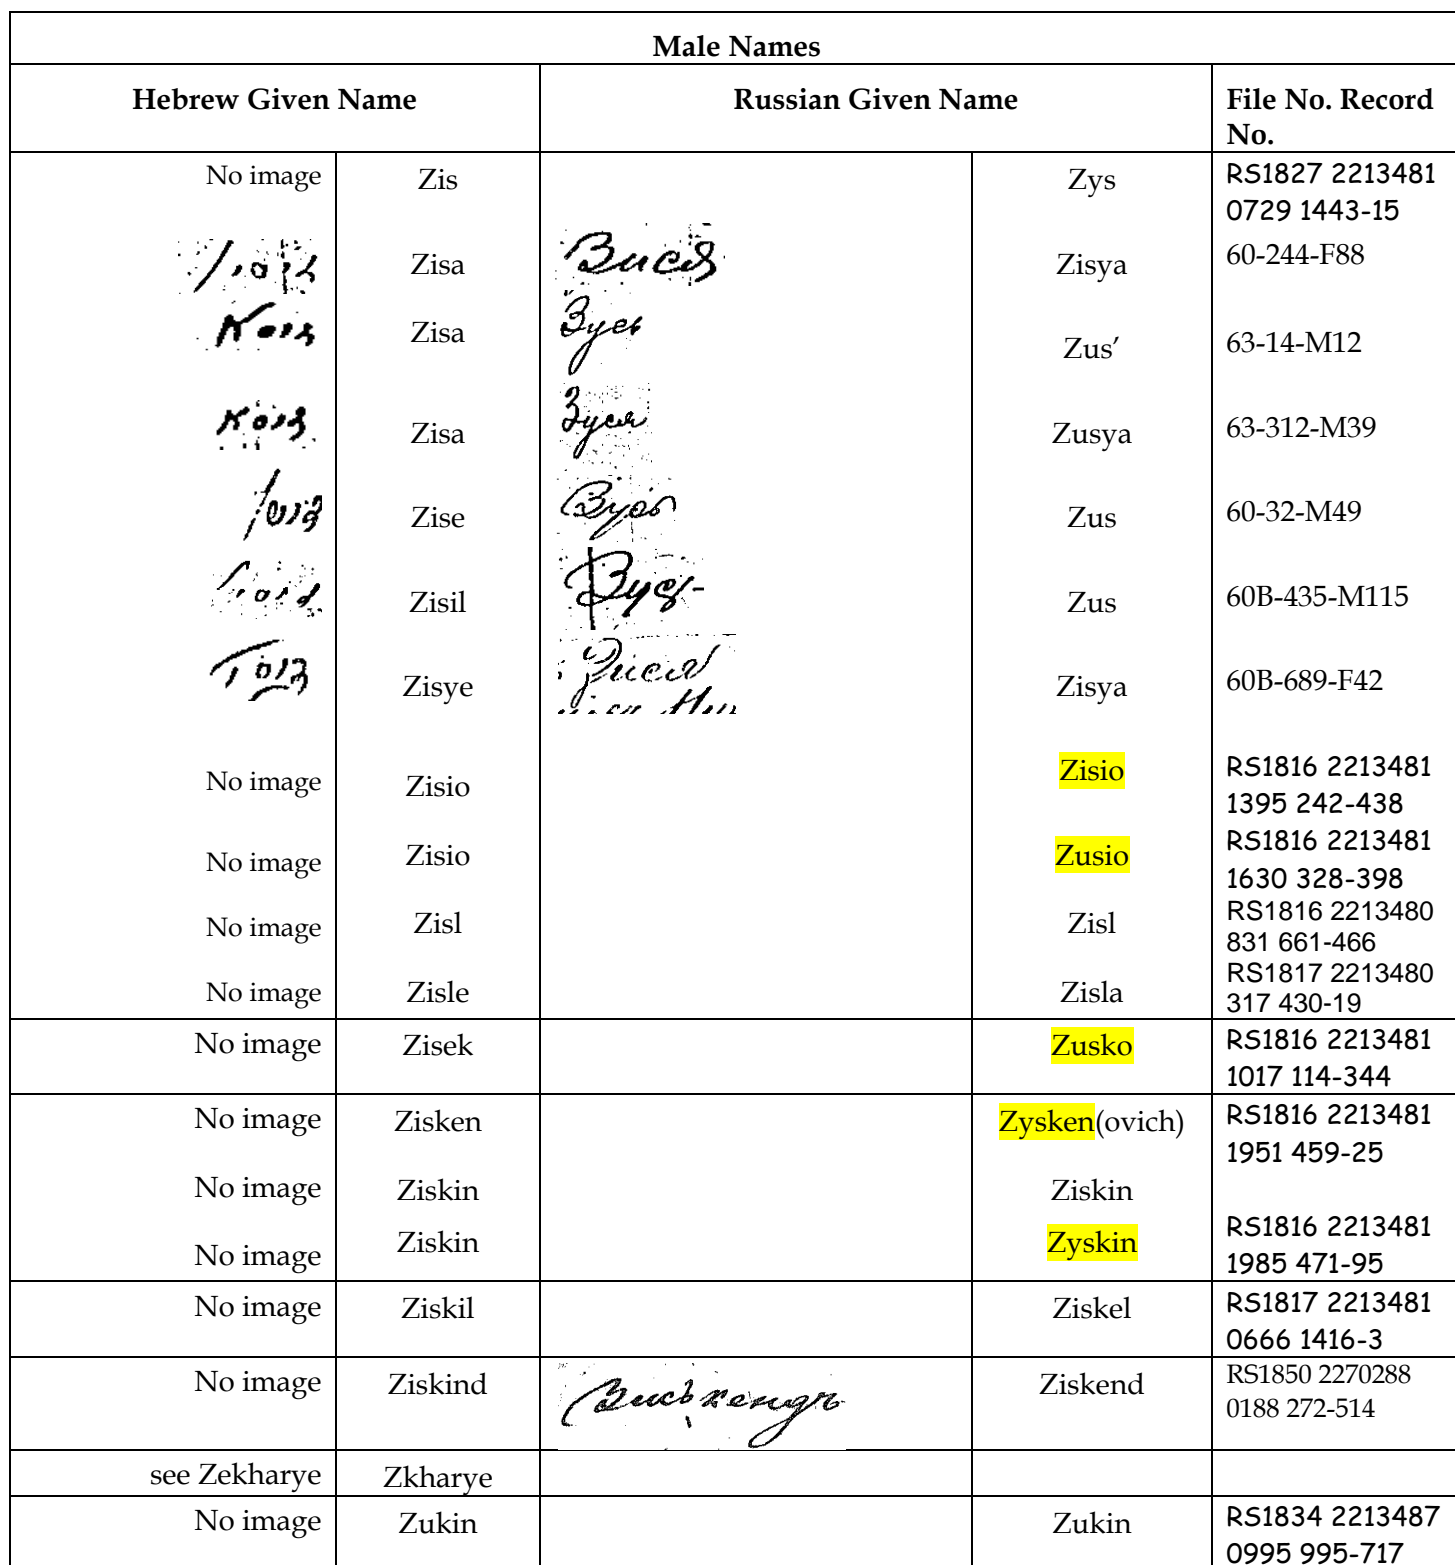 Male Names
Hebrew Given Name Russian Given Name File No. Record No.
No image Zis Zys RS1827 2213481 0729 1443-15
Zisa Зися Zisya 60-244-F88
Zisa Зусь Zus’ 63-14-M12
Zisa Зуся Zusya 63-312-M39
Zise Зусъ Zus 60-32-M49
Zisil Зусъ Zus 60B-435-M115
Zisye Зися Zisya 60B-689-F42
No image Zisio Zisio RS1816 2213481 1395 242-438
No image Zisio Zusio RS1816 2213481 1630 328-398
No image Zisl Zisl RS1816 2213480 831 661-466
No image Zisle Zisla RS1817 2213480 317 430-19
No image Zisek Zusko RS1816 2213481 1017 114-344
No image Zisken Zysken(ovich) RS1816 2213481 1951 459-25
No image Ziskin Ziskin
No image Ziskin Zyskin RS1816 2213481 1985 471-95
No image Ziskil Ziskel RS1817 2213481 0666 1416-3
No image Ziskind Зиськендъ Ziskend RS1850 2270288 0188 272-514
see Zekharye Zkharye
No image Zukin Zukin RS1834 2213487 0995 995-717